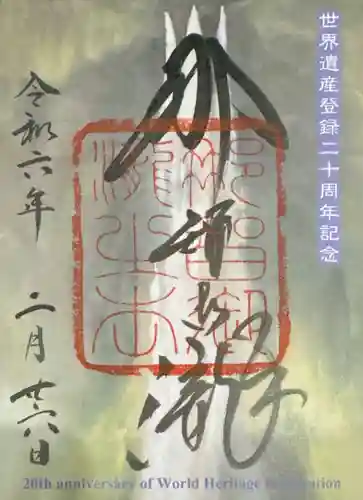 世界遺産登録二十周年記念
那智御瀧
那智御
瀧之本
令和六年
二月廿六日
20th anniversary of World Heritage Registration